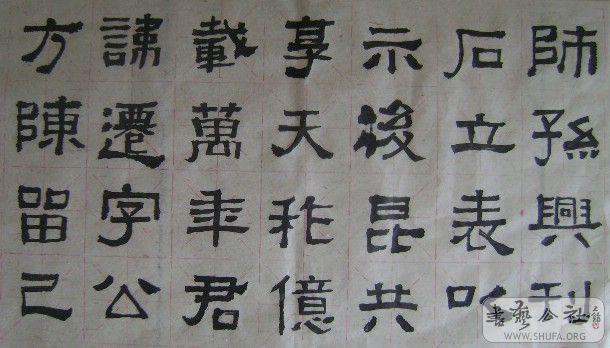 師孫興刊
石立表以
示後昆共
享天祚億
載萬年君
諱遷字公
方陳留己
書藝公社
WWW.SHUFA.ORG